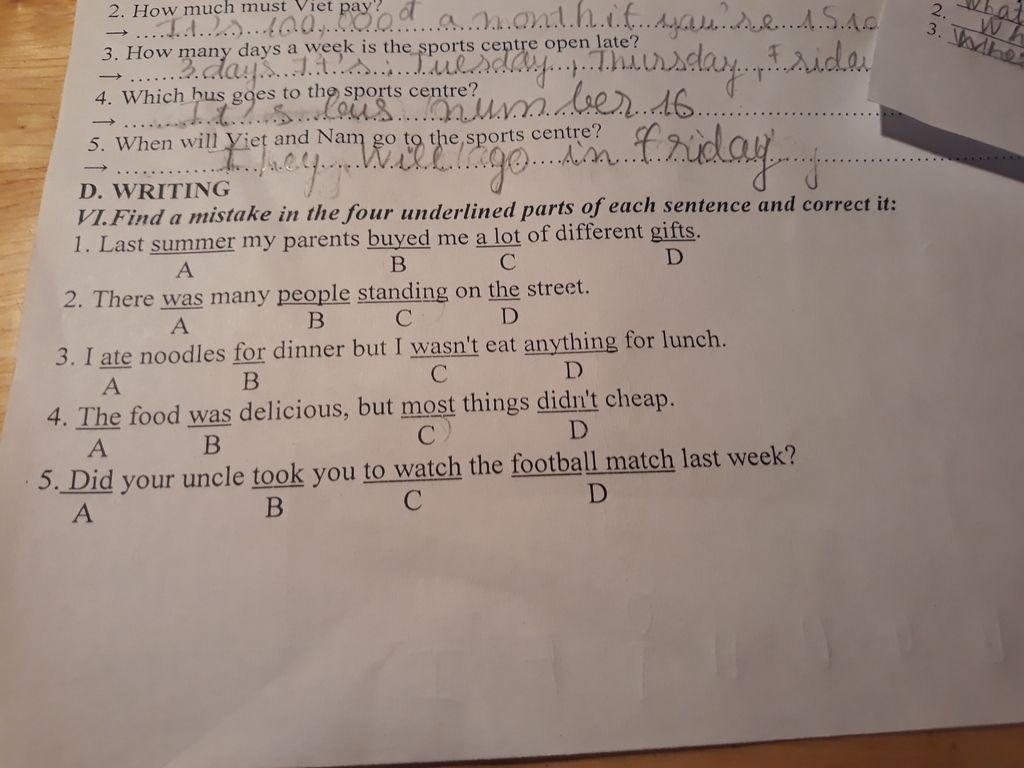 2. How much must Viet pay?
→ It's 100,000đ a month if you're 15
3. How many days a week is the sports centre open late?
→ 3 days. It's: Tuesday, Thursday, Friday
4. Which bus goes to the sports centre?
→ It's bus number 16
5. When will Viet and Nam go to the sports centre?
→ They will go in friday
D. WRITING
VI.Find a mistake in the four underlined parts of each sentence and correct it:
1. Last summer my parents buyed me a lot of different gifts.
A B C D
2. There was many people standing on the street.
A B C D
3. I ate noodles for dinner but I wasn't eat anything for lunch.
A B C D
4. The food was delicious, but most things didn't cheap.
A B C D
5. Did your uncle took you to watch the football match last week?
A B C D
2. What
3.